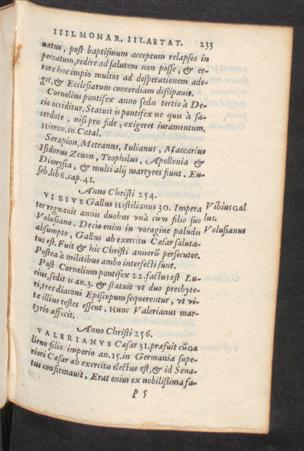 IIII. MONAR. III. AETAT. 233
natus, post baptismum acceptum relapsos in
peccatum, redire ad salutem non posse, & er-
rore hoc impio multos ad desperationem ade-
git, & Ecclesiarum concordiam dissipauit.
Cornelius pontifex anno sedis tertio à De-
cio occiditur. Statuit is pontifex ne quis à sa-
cerdote, nisi pro fide, exigeret iuramentum.
Hieron. in Catal.
Serapion, Metranus, Iulianus, Maccarius
Isidorus Zenon, Teophilus, Apollonia &
Dionysia, & multi alij martyres fiunt. Eu-
seb. lib. 6. cap. 41.
Anno Christi 254.
VIBIVS Gallus Hostilianus 30. Impera
tor regnauit annis duobus vnà cum filio suo
Volusiano. Decio enim in voragine paludis
absumpto, Gallus ab exercitu Caesar saluta-
tus est. Fuit & hic Christi amatorū persecutor.
Postea à militibus ambo interfecti sunt.
Post Cornelium pontifex 22. factus est Lu-
cius, sedit is an. 3. & statuit vt duo presbyte-
ri, tres diaconi Episcopum sequerentur, vt vi-
tæ illius testes essent. Hunc Valerianus mar-
tyrio affecit.
Vibius Gal
lus.
Volusianus
Anno Christi 256.
VALERIANVS Caesar 31. præfuit cū Ga
lieno filio imperio an. 15. in Germania supe-
riori Caesar ab exercitu electus est, & id Sena-
tus confirmauit. Erat enim ex nobilissima fa-
P 5